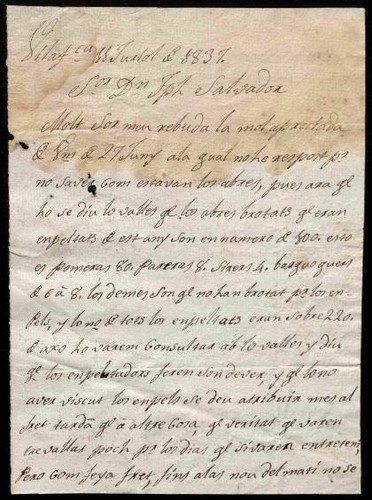 Vilafca 11 Juriol de 1837.
Sor Dn Jph Salvador
Molt Sor meu rebuda la mol apreciada
de Vm de 27 Juny a la qual no he resport pr
no saver com estavan los abres, pues ara qe
ho se diu lo valles qe los abres brotats qe eran
enpeltats de est any son en numero de 100. esto
es pomeras 80. Pareras 8. sirers 4. barquoquers
de 6 à 8. los demes son qe no han brotat pe los en-
pels, y lo no de tots los enpeltats eran sobre 220.
de axo ho varem Consultar ab lo valles y diu
qe los enpeltadors feren son dever, y qe lo no
aver viscut los enpels se deu atribuir mes al
fret tardá qe à altre Cosa, qe veritat qe varen
tre vallas poch pe los dias qe si varen entretení,
Pero Com feya fret, fins a las nou del matí no se